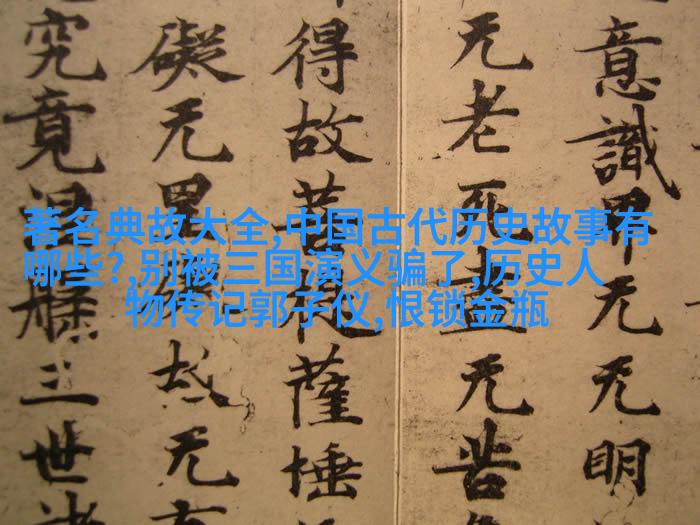 著名典故大全,中国古代历史故事有
哪些?,别被三国演义骗了,历史人
物传记郭子仪,恨锁金瓶
意識界无无明
无老死盡无苦
得故菩提薩埵
礙无罣故无
究竟涅槃三世